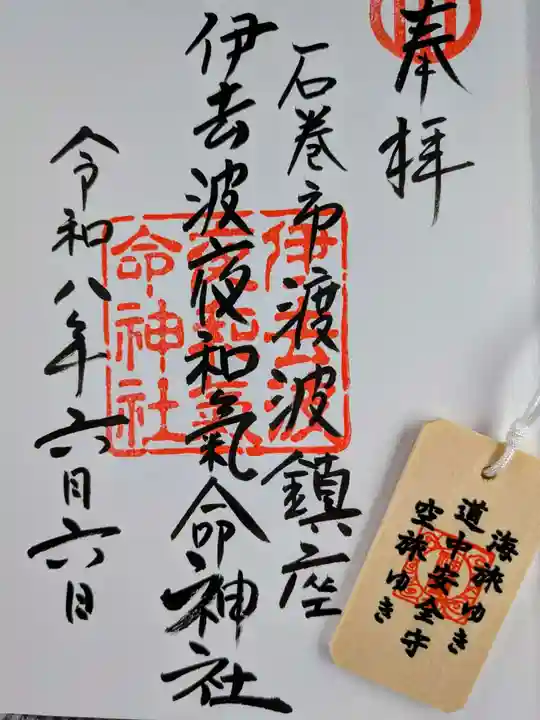 奉拝
石巻市渡波鎮座
伊去波夜和氣命神社
令和八年六月六日
伊去波
夜和氣
命神社
海旅ゆき
道中安全守
空旅ゆき